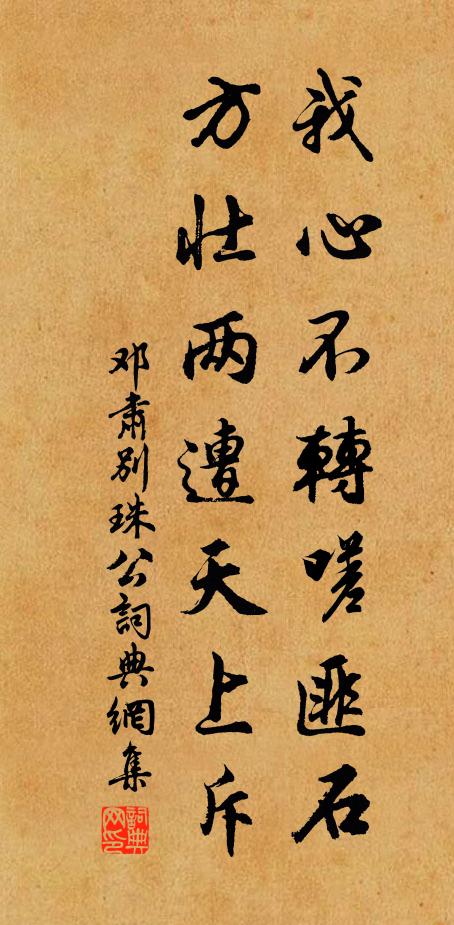 我心不轉嗟匪石
方壮两遭天上斥
邓肅别珠公詞典網集
詞典网印